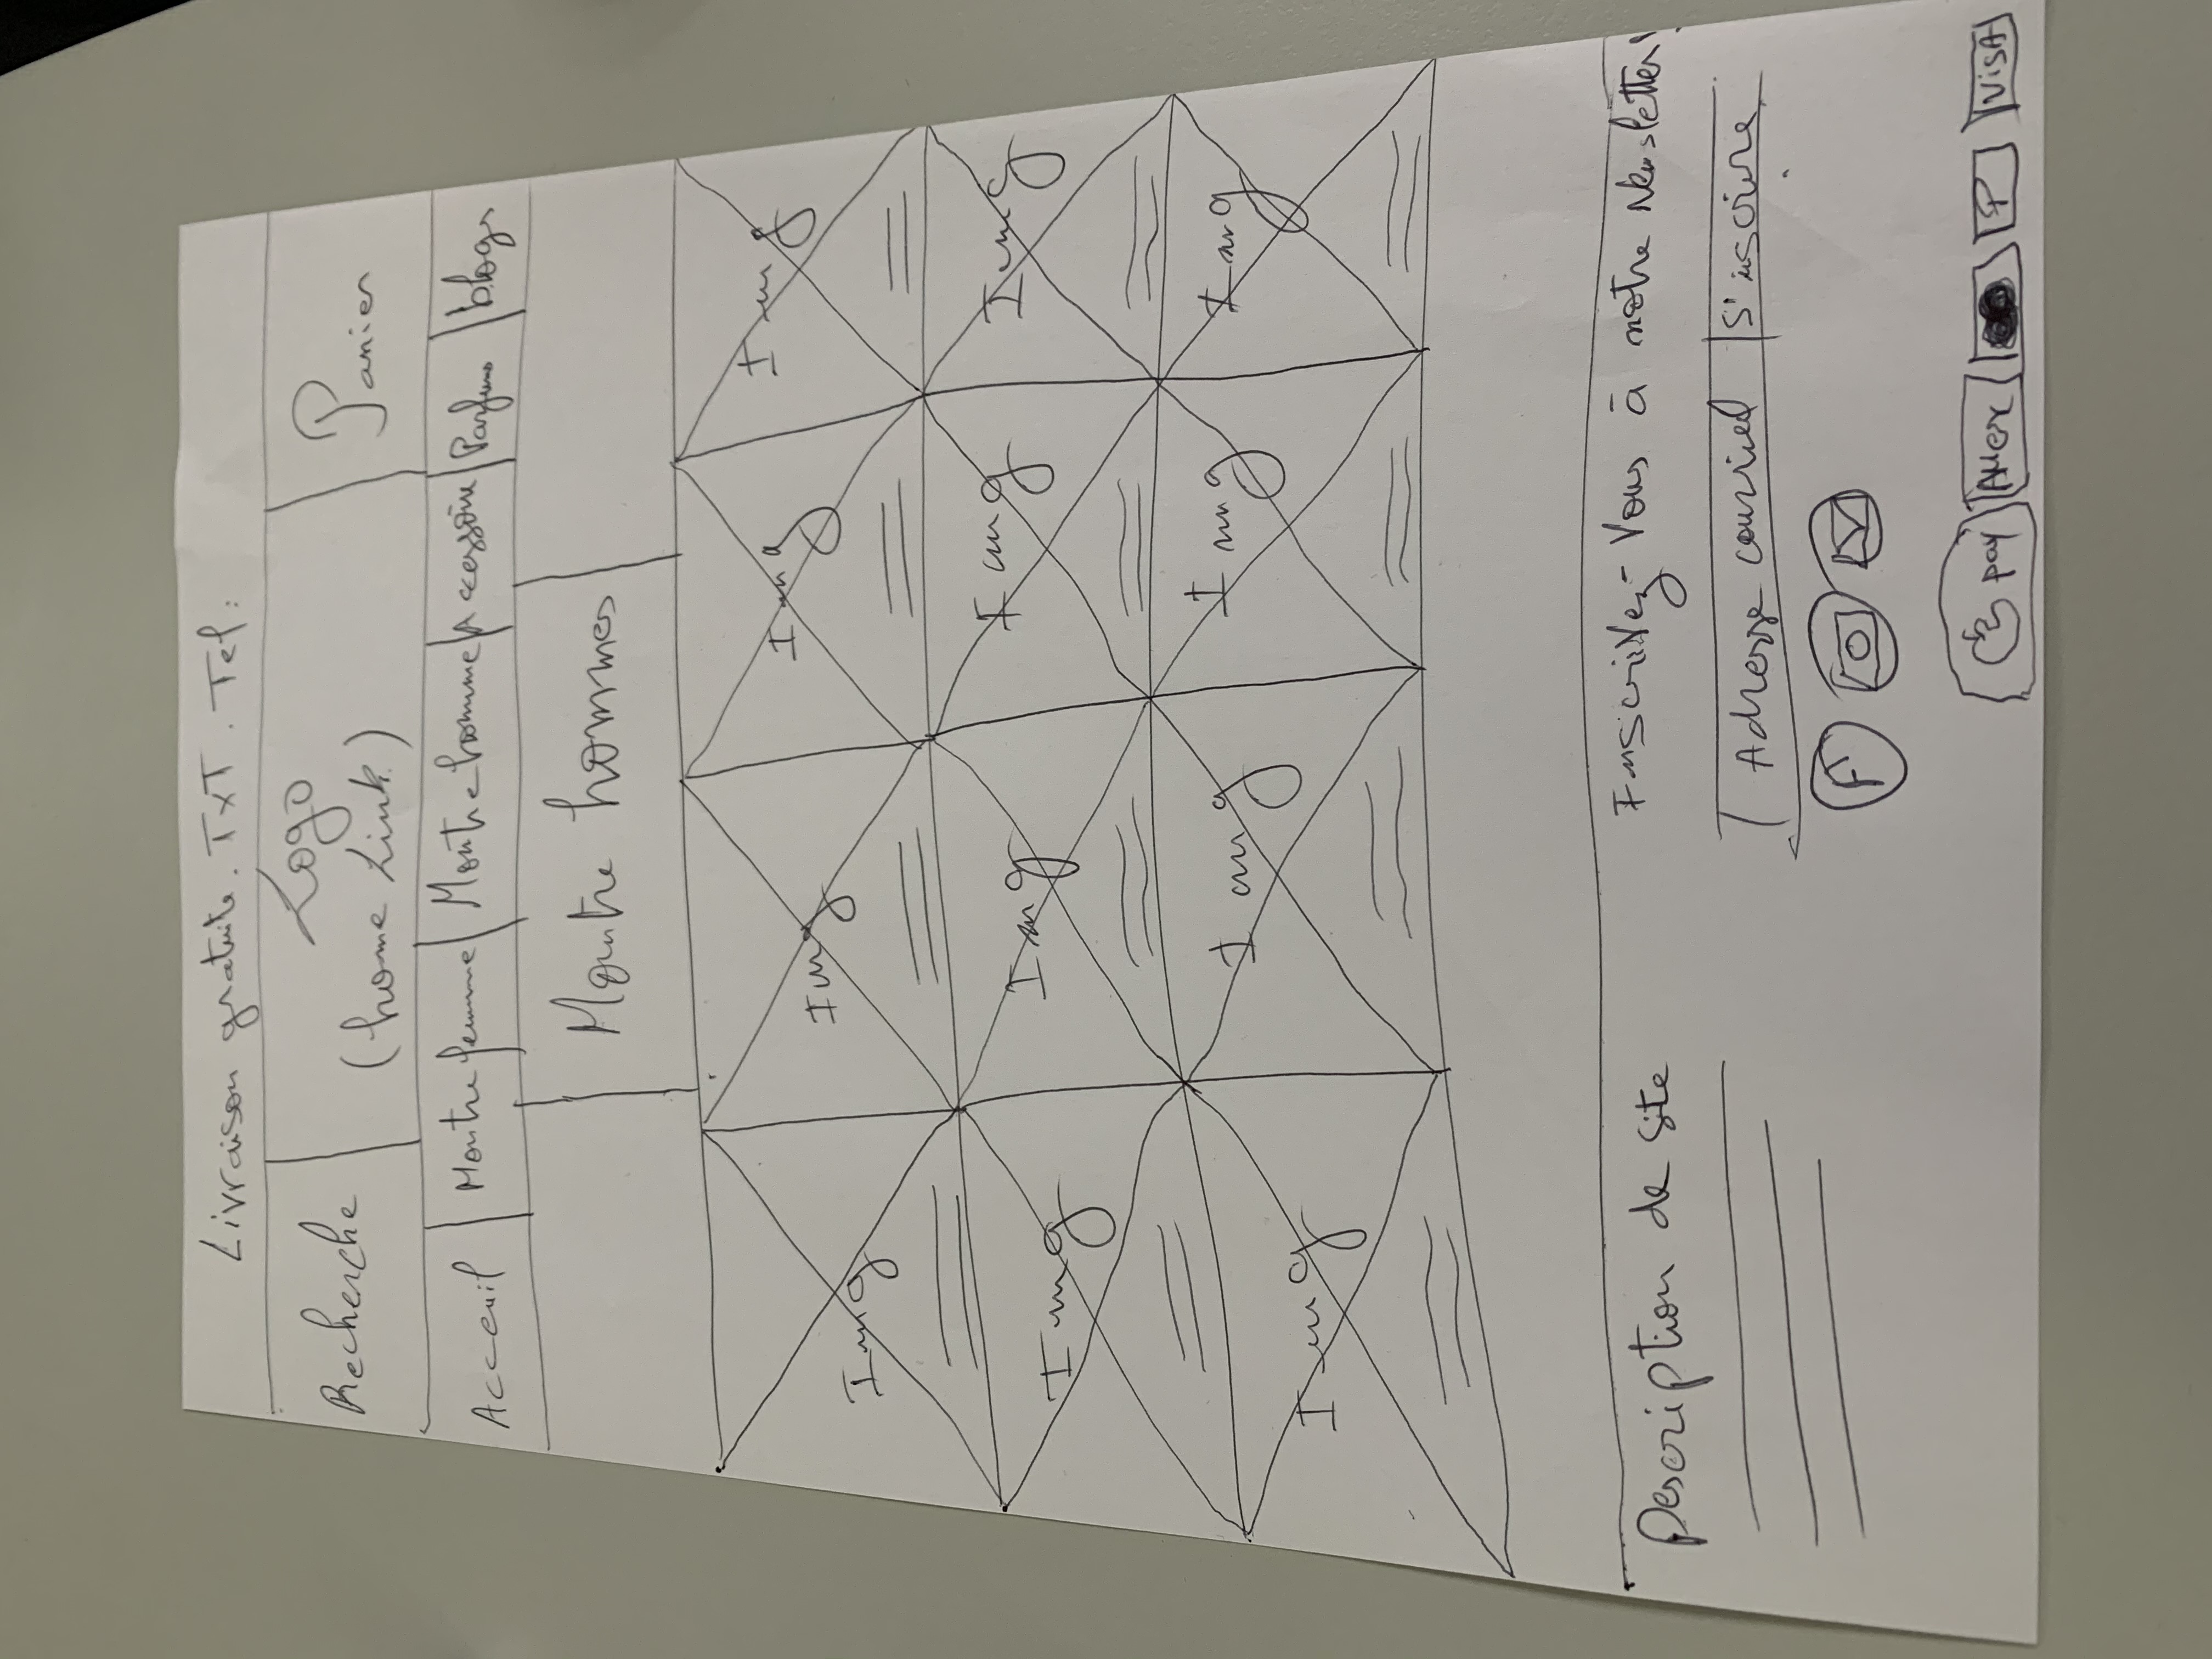 Livraison gratuite. TxT. Tel:
Recherche
Logo
(home Link)
Panier
Acceuil
Montre femme
Montre homme
Accessoire
Parfums
blogs
Montre hommes
Img
Img
Img
Img
Img
Img
Img
Img
Img
Img
Img
Img
Description de site
Inscrivez-Vous à notre Newsletter!
Adresse courriel
S'inscrire
F
pay
AMex
P
VISA